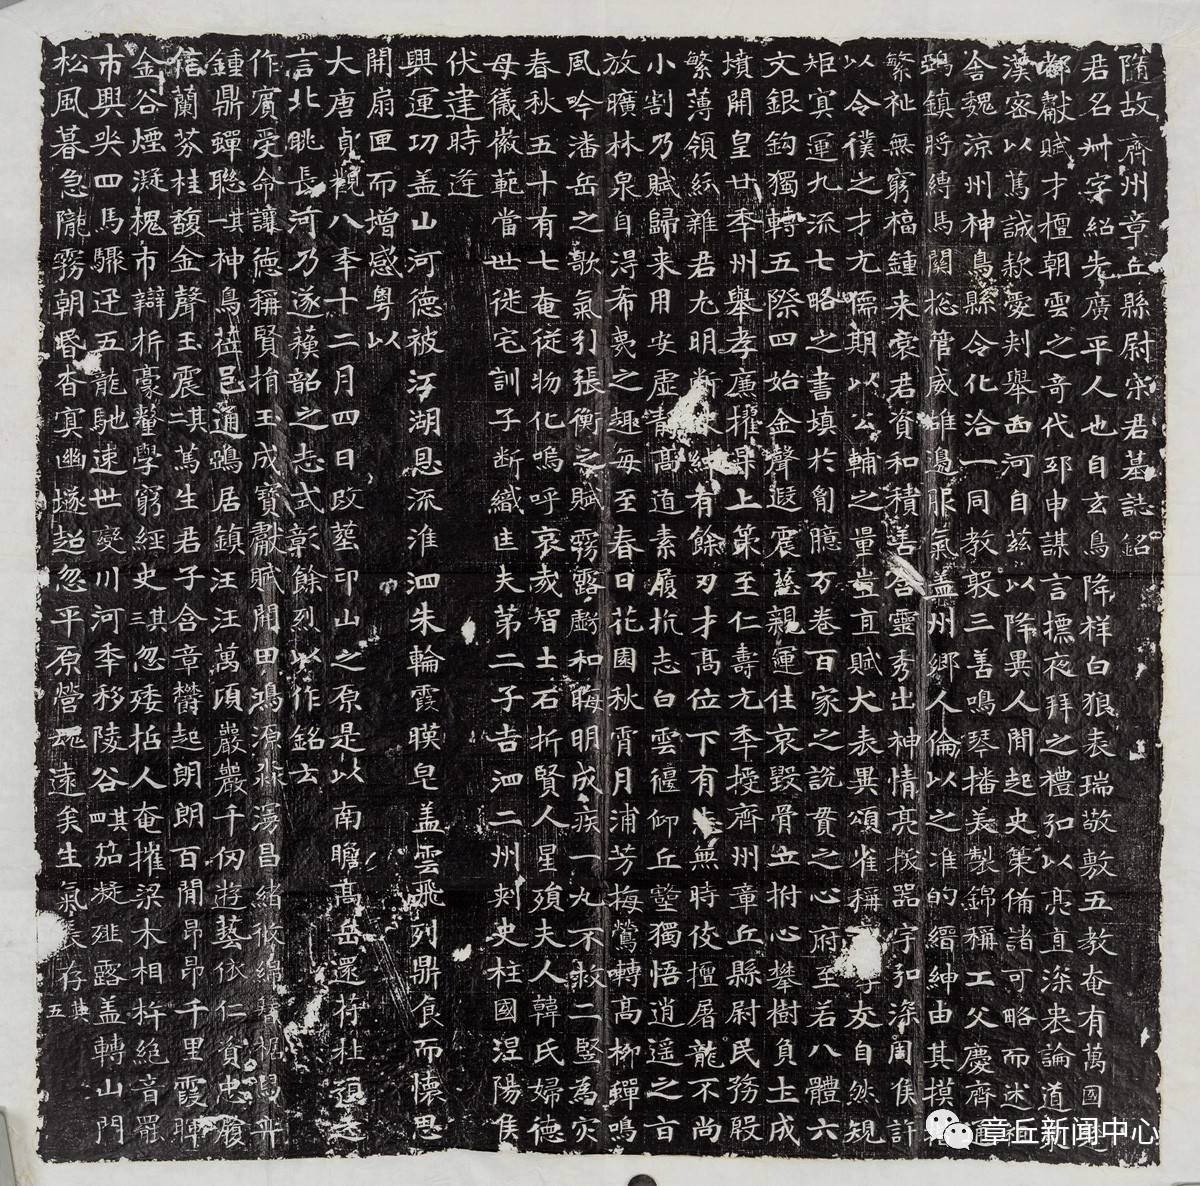 隋故齊州章丘縣尉宋君墓誌銘
君名卅字紹先廣平人也自玄鳥降祥白狼表瑞敬敷五教奄有萬國
獻賦才檀朝雲之奇代邳申謀言摽夜拜之禮弘以亮直深表論道
漢密以篤誠款愛判舉西河自茲以降異人間起史策俻諸可略而述
舍魏涼州神鳥縣令化洽一同教躬三善鳴琴播美製錦稱工父慶齊
鎮將縛馬關惣管威雄邊服氣盖州鄉人倫以之准的縉紳由其摸
繁祉無窮福鍾来裔君資和積善含靈秀出神情亮拔器宇弘深周侯許
以令僕之才尤嚅期以公輔之量豈直賦大表異頌雀稱 友自然規
矩冥運九流七略之書填於匈臆万卷百家之說貫之心府至若八體六
文銀鈎獨轉五際四始金聲遐震慈親運往哀毀骨立拊心攀樹負土成
墳開皇廿季州舉孝廉擢第上策至仁壽元季授齊州章丘縣尉民務殷
繁薄領紛雜君尤明斷 有餘刃才高位下有 無時伎擅屠龍不尚
小割乃賦歸来用安虛 高道素履抗志白雲偃仰丘壑獨悟逍遥之旨
放曠林泉自得希夷之趣每至春日花園秋霄月浦芳梅鶯轉高柳蟬鳴
風吟潘岳之歌氣引張衡之賦霧露虧和晦明成疾一九不救二豎為灾
春秋五十有七奄従物化嗚呼哀哉智士石折賢人星殞夫人韓氏婦德
母儀徽範當世徙宅訓子断織 夫第二子吉泗二州刺史柱國涅陽侯
伏建時逢
興運功盖山河德被江湖恩流淮泗朱輪霞暎皂盖雲飛列鼎食而懷思
開扇匣而增感粤以
大唐貞觀八季十二月四日改塟邙山之原是以南瞻髙岳還符杜預之
言北眺長河乃遂蘓韶之志式彰餘烈以作銘云
作賓受命讓德稱賢捐玉成寶獻賦開田鴻源淼蕩昌緒攸綿
鍾鼎蟬聮其一神鳥莅邑通鴞居鎮汪汪萬頃巖巖千仞遊藝依仁資忠履
信蘭芬桂馥金聲玉震其二篤生君子含章欝起朗朗百間昂昂千里霞暉
金谷煙凝槐市辯析豪釐學窮經史其三忽痿哲人奄摧梁木相杵絶音罷
市興哭四馬驟迊五龍馳速世變川河季移陵谷其四茄凝 露盖轉山門
松風暮急隴霧朝昬杳冥幽壟超忽平原營魂遠矣生氣長存其五
章丘新闻中心